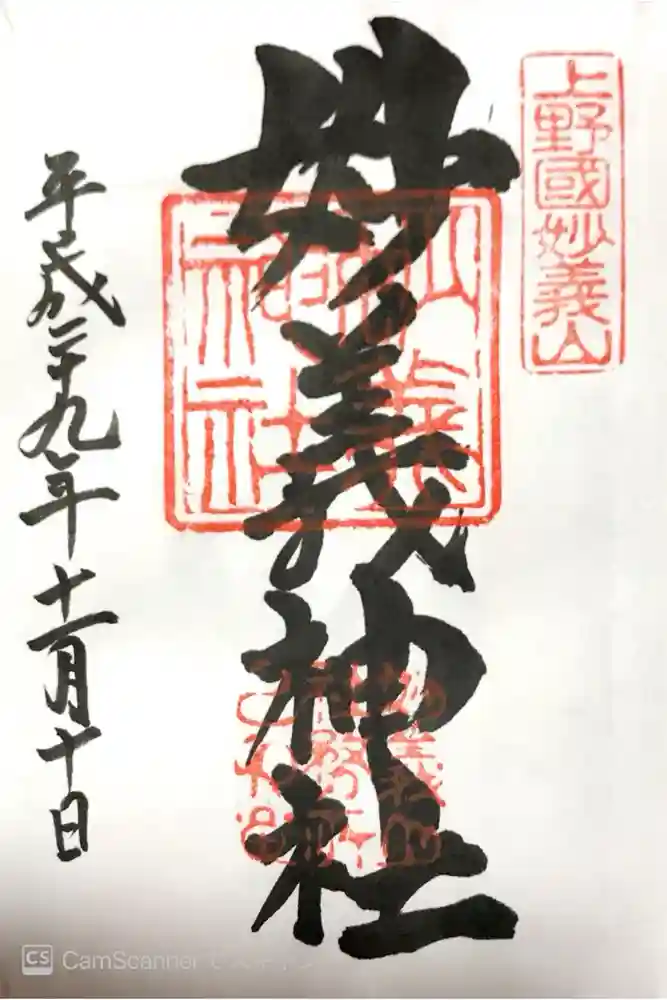 上野國妙義山
妙義神社
平成二十九年十一月十日
CS CamScanner